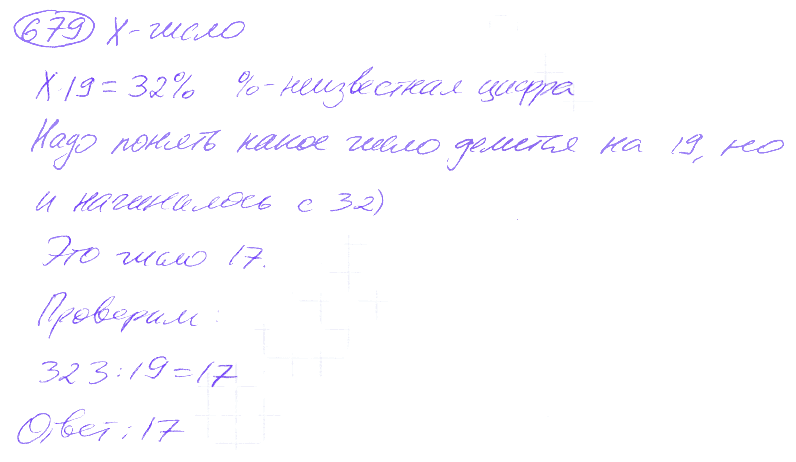 679 X-число
X·19=32% %-неизвестная цифра
Надо понять какое число делится на 19, но
и начиналось с 32)
Это число 17.
Проверим:
323:19=17
Ответ: 17